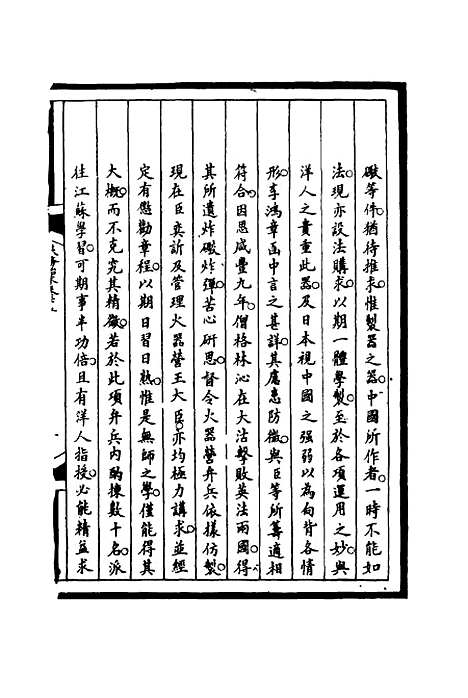 礮等件。猶待推求。惟製器之器。中國所作者。一時不能如
法。現亦設法購求。以期一體學製。至於各項運用之妙。與
洋人之貴重此器。及日本視中國之強弱以為向背各情
形。李鴻章函中言之甚詳。其慮患防微。與臣等所籌適相
符合。因思咸豐九年。僧格林沁在大沽擊敗英法兩國。得
其所遺炸礮炸彈。苦心研思。督令火器營弁兵依樣仿製。
現在臣奕訢及管理火器營王大臣。亦均極力講求。並經
定有懲勸章程。以期日習日熟。惟是無師之學。僅能得其
大概。而不克究其精微。若於此項弁兵內酌揀數十名。派
往江蘇學習。可期事半功倍。且有洋人指授。必能精益求